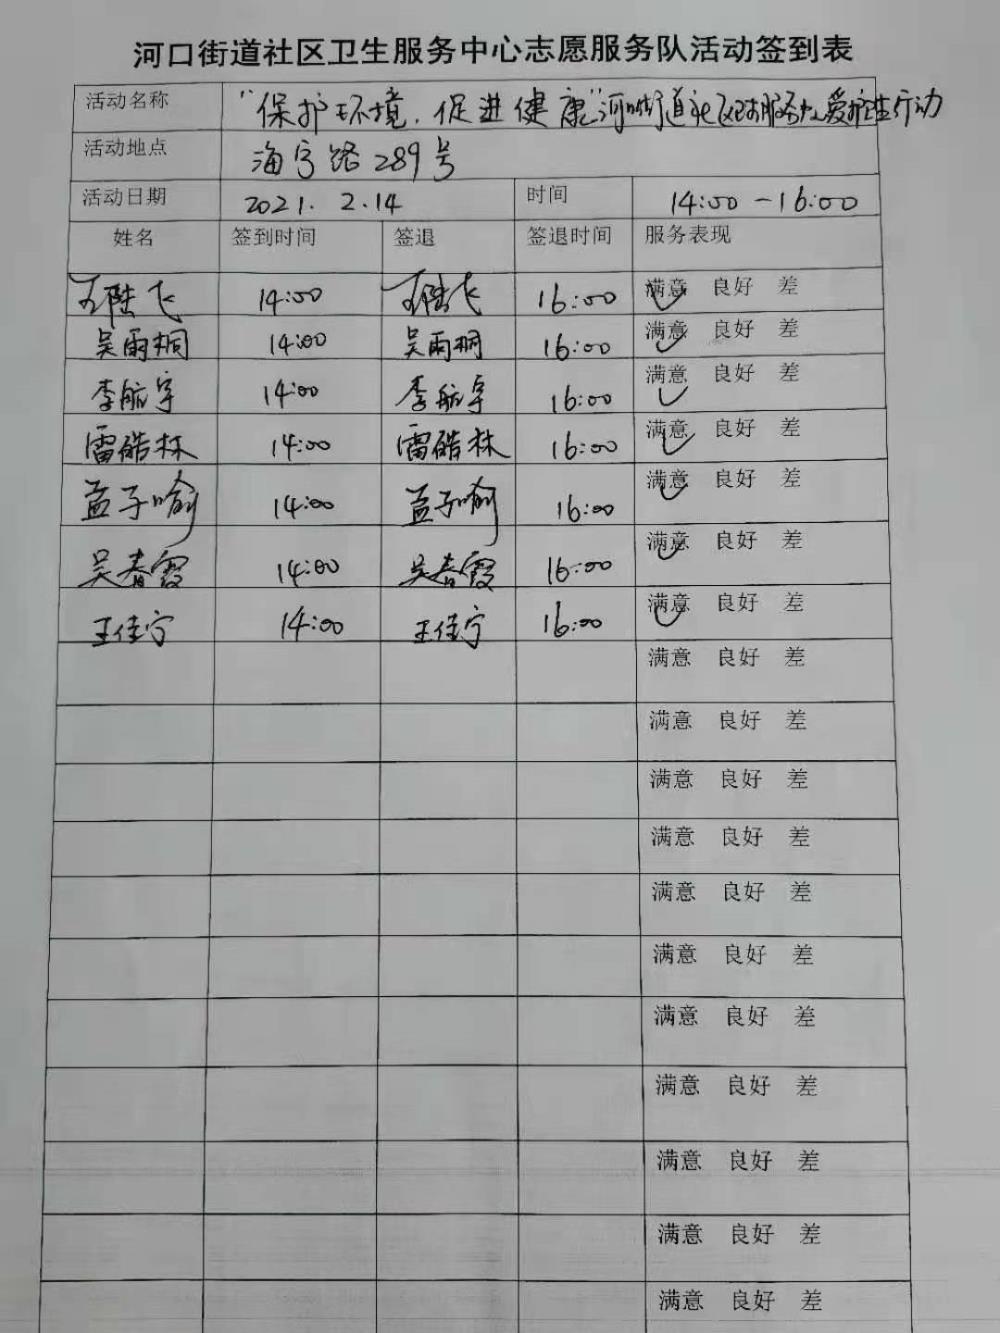 河口街道社区卫生服务中心志愿服务队活动签到表
活动名称 "保护环境,促进健康"河口街道社区志愿服务队爱卫生行动
活动地点 海宁路289号
活动日期 2021.2.14 时间 14:00-16:00
姓名 签到时间 签退 签退时间 服务表现
王陆飞 14:00 王陆飞 16:00 满意 良好 差
吴雨桐 14:00 吴雨桐 16:00 满意 良好 差
李航宇 14:00 李航宇 16:00 满意 良好 差
雷皓林 14:00 雷皓林 16:00 满意 良好 差
孟子喻 14:00 孟子喻 16:00 满意 良好 差
吴春霞 14:00 吴春霞 16:00 满意 良好 差
王佳宁 14:00 王佳宁 16:00 满意 良好 差
满意 良好 差
满意 良好 差
满意 良好 差
满意 良好 差
满意 良好 差
满意 良好 差
满意 良好 差
满意 良好 差
满意 良好 差
满意 良好 差
满意 良好 差